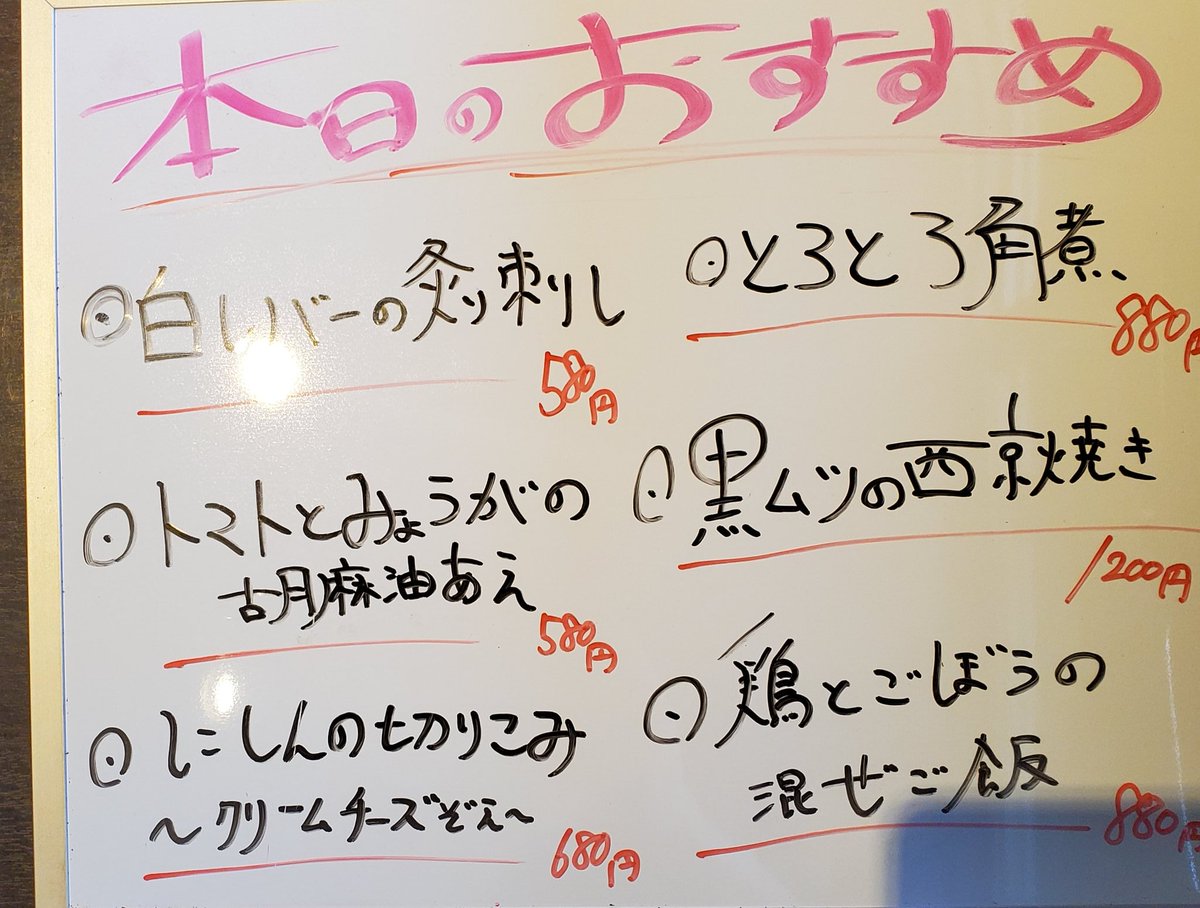 本日のおすすめ
白レバーの炙り刺し
580円
トマトとみょうがの
胡麻油あえ
580円
にしんの切りこみ
~クリームチーズぞえ~
680円
とろとろ角煮
880円
黒ムツの西京焼き
1200円
鶏とごぼうの
混ぜご飯
880円